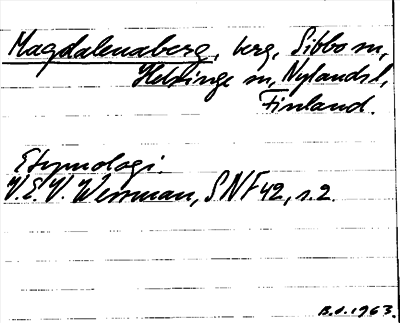 Magdalenaberg, berg, Sibbo sn,
Helsinge sn, Nylands l,
Finland.
Etymologi.
V.E.V. Wessman, SNF 42, s. 2.
B.S. 1963.